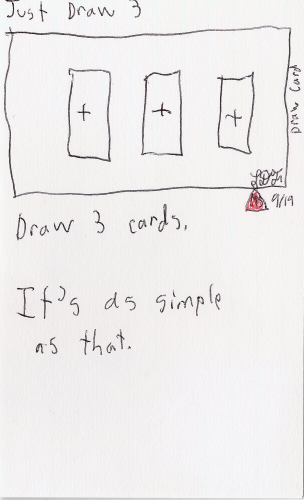 Just Draw 3
Draw Card
9/19
Draw 3 cards.
It's as simple
as that.